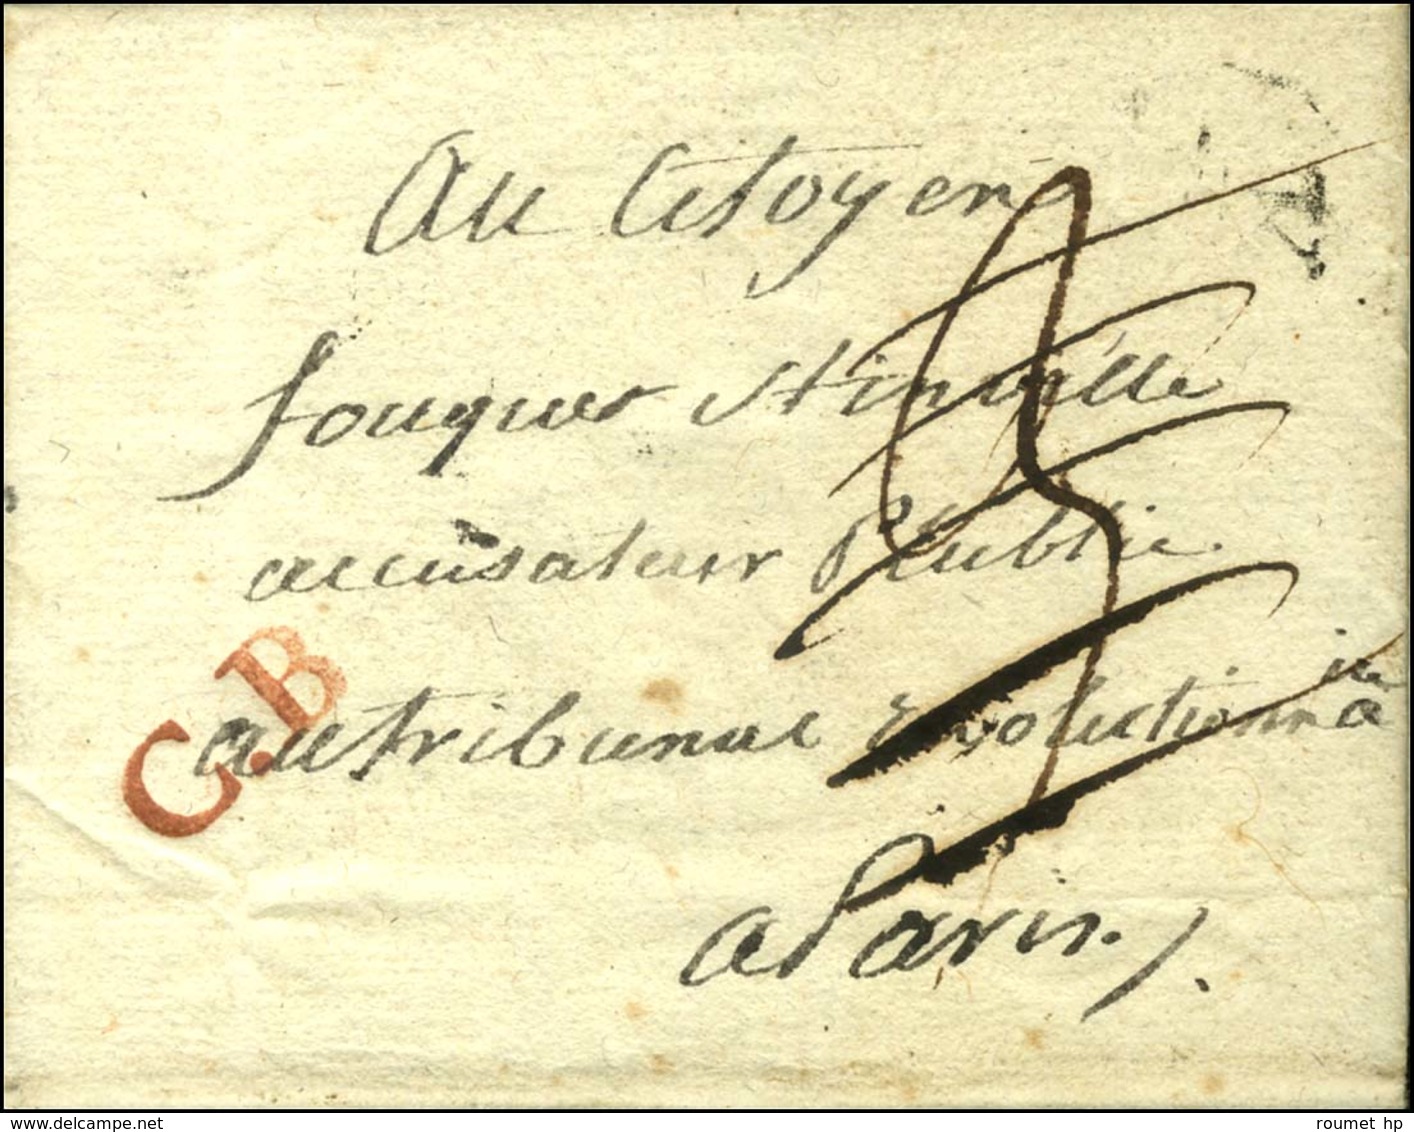 Au Citoyen
fouquer tinville
accusateur Public
C.B
au tribunal Revolutionnaire
a Paris.
www.delcampe.net
roumet hp